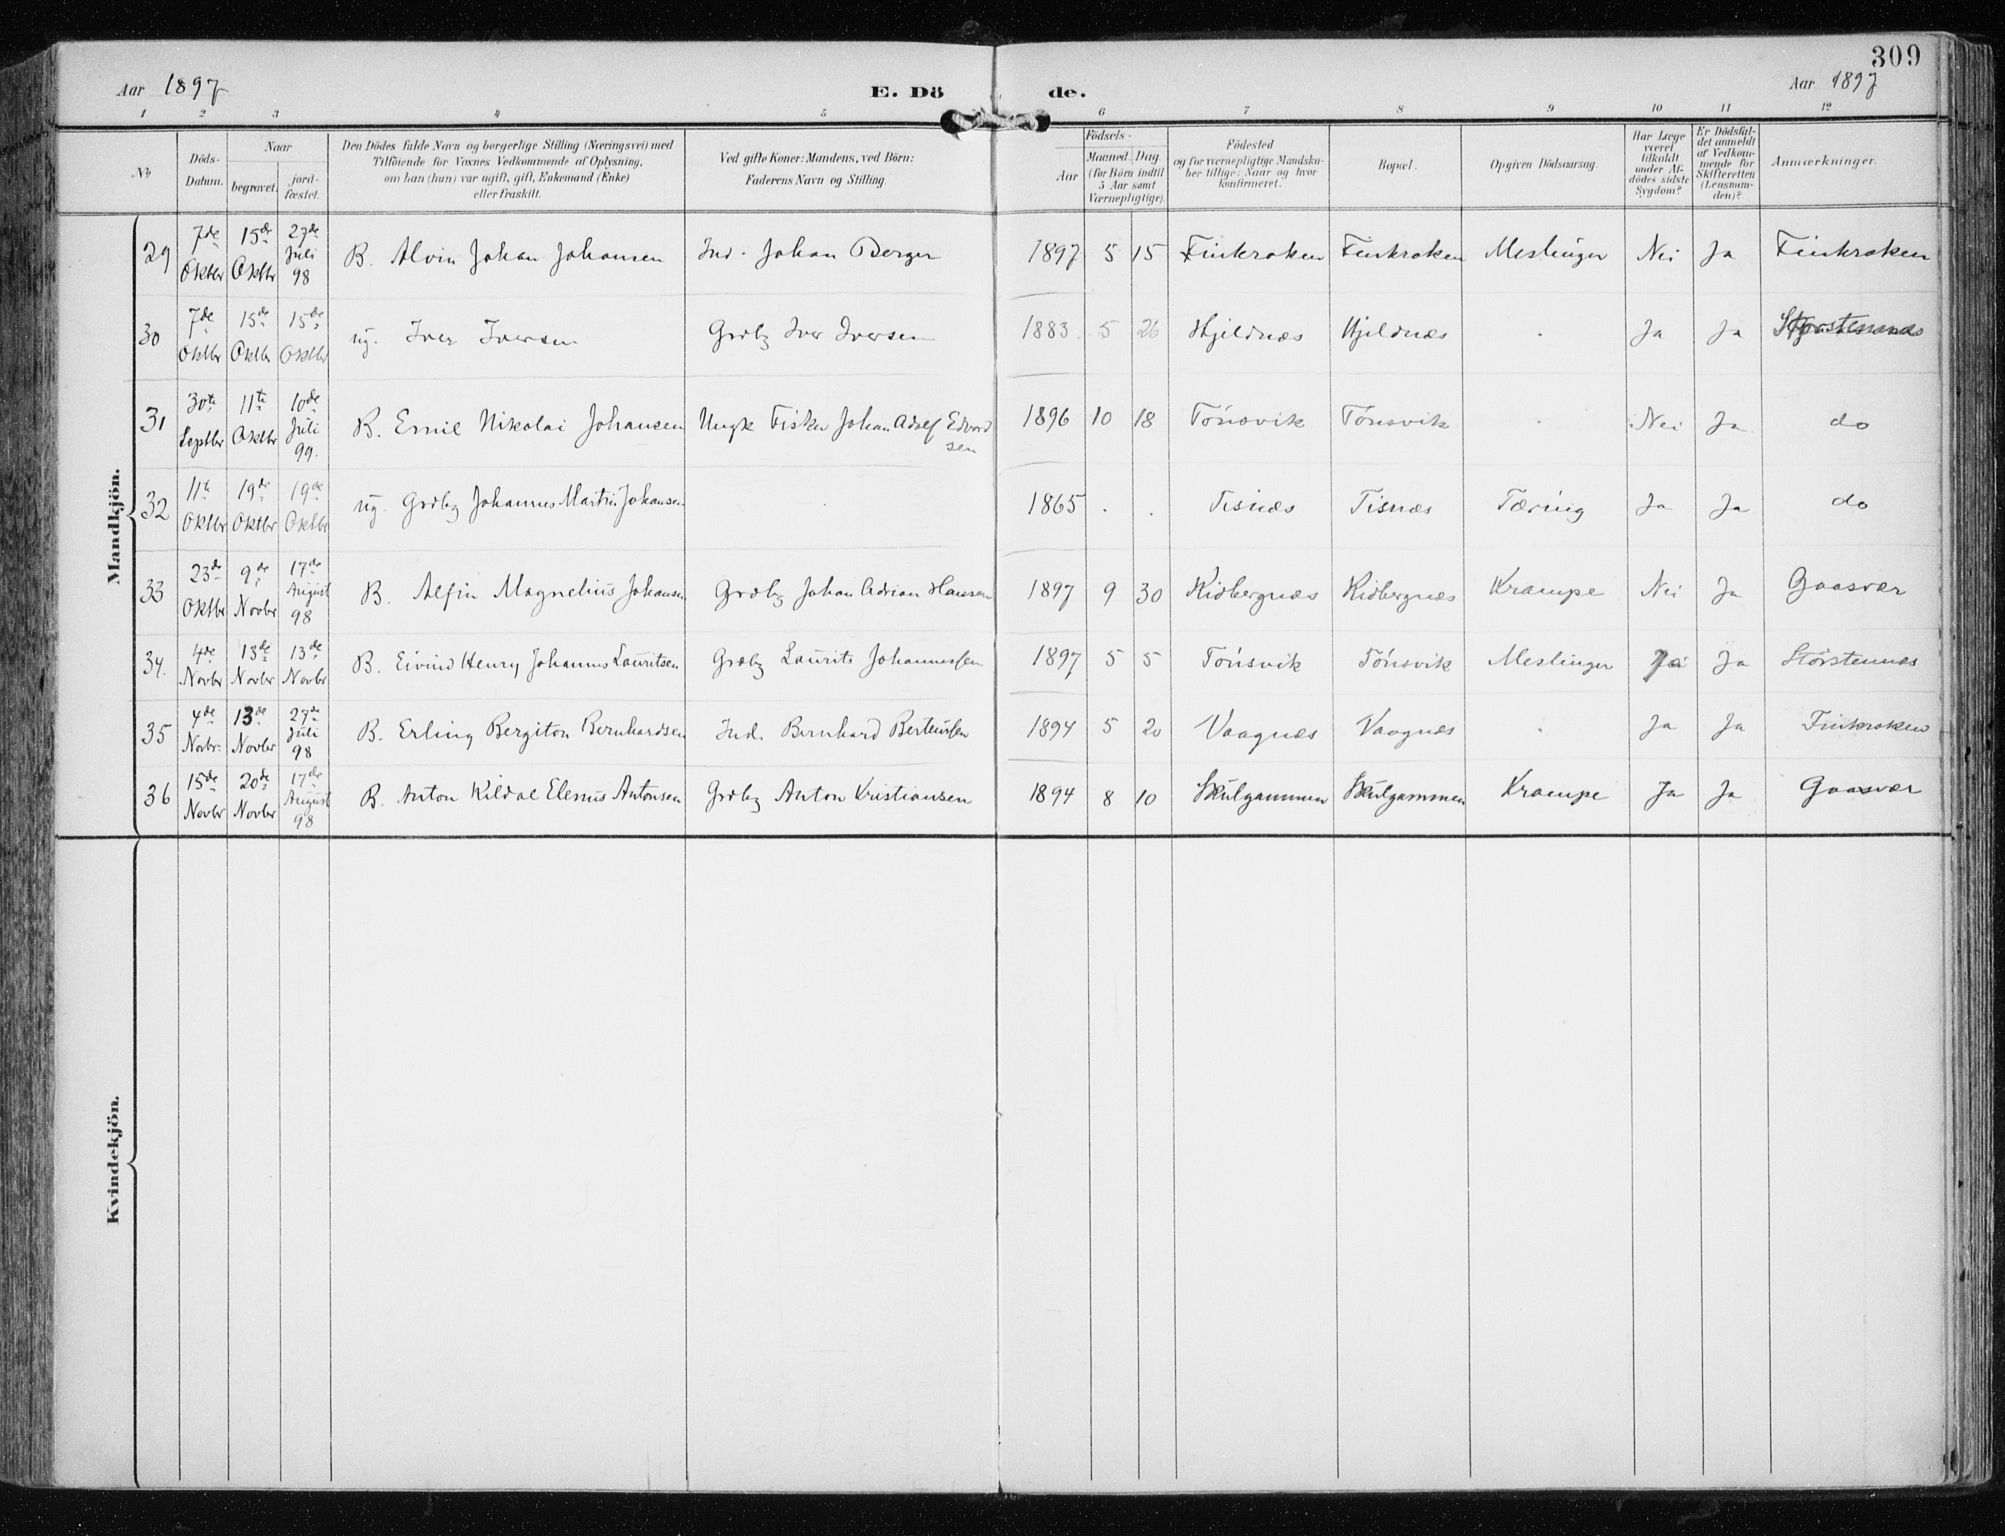 309
Aar 1897
E. Dö
de.
Aar 1897
1 2 3 4 5 6 7 8 9 10 11 12
№
Döds-Datum.
Naar
begravet.
jord-fæstet.
Den Dödes fulde Navn og borgerlige Stilling (Næringsvei) med
Tilföiende for Voxnes Vedkommende af Oplysning,
om han (hun) var ugift, gift, Enkemand (Enke)
eller fraskilt.
Ved gifte Koner: Mandens, ved Börn:
Faderens Navn og Stilling.
Födsels-
Aar
Maaned. Dag
(for Börn indtil
5 Aar samt
Værnepligtige).
Födested
og for værnepligtige Mandsku-
ber tillige: Naar og hvor
konfirmeret.
Bopæl.
Opgiven Dödsaarsag.
Har Læge
været
tilkaldt
under Af-
dödes sidste
Sygdom?
Er Dödsfal-
det anmeldt
af Vedkom-
mende for
Skifteretten
(Lensman-
den)?
Anmærkninger.
Mandkjön.
29 7de Oktbr 15de Oktbr 27de Juli 98 B. Alvin Johan Johansen Ind. Johan Berger 1897 5 15 Finkroken Finkroken Meslinger Nei Ja Finkroken
30 7de Oktbr 15de Oktbr 15de Oktbr ug. Iver Iversen Grdbr Iver Iversen 1883 5 26 Hjeldnæs Hjeldnæs . Ja Ja Storstennæs
31 30te Septbr 11te Oktbr 10de Juli 99. B. Emil Nikolai Johansen Ungk Fisker Johan Adolf Edvardsen 1896 10 18 Tönsvik Tönsvik . Nei Ja do
32 11te Oktbr 19de Oktbr 19de Oktbr ug. Grdbr Johannes Martin Johansen . 1865 . . Tisnæs Tisnæs Tæring Ja Ja do
33 23de Oktbr 9de Novbr 17de August 98 B. Alfin Magnelius Johansen Grdbr Johan Adrian Hansen 1897 9 30 Kidbergnæs Kidbergnæs Krampe Nei Ja Gaasvær
34. 4de Novbr 13de Novbr 13de Novbr B. Eivind Henry Johannes Lauritsen Grdbr Laurits Johannessen 1897 5 5 Tönsvik Tönsvik Meslinger Ja Storstennæs
35 4de Novbr. 13de Novbr 27de Juli 98 B. Erling Bergiton Bernhardsen Ind. Bernhard Berteussen 1894 5 20 Vaagnæs Vaagnæs . Ja Ja Finkroken
36 15de Novbr 20de Novbr 17de August 98 B. Anton Kildal Elenus Antonsen Grdbr Anton Kristiansen 1894 8 10 Skulgammen Skulgammen Krampe Ja Ja Gaasvær
Kvindekjön.